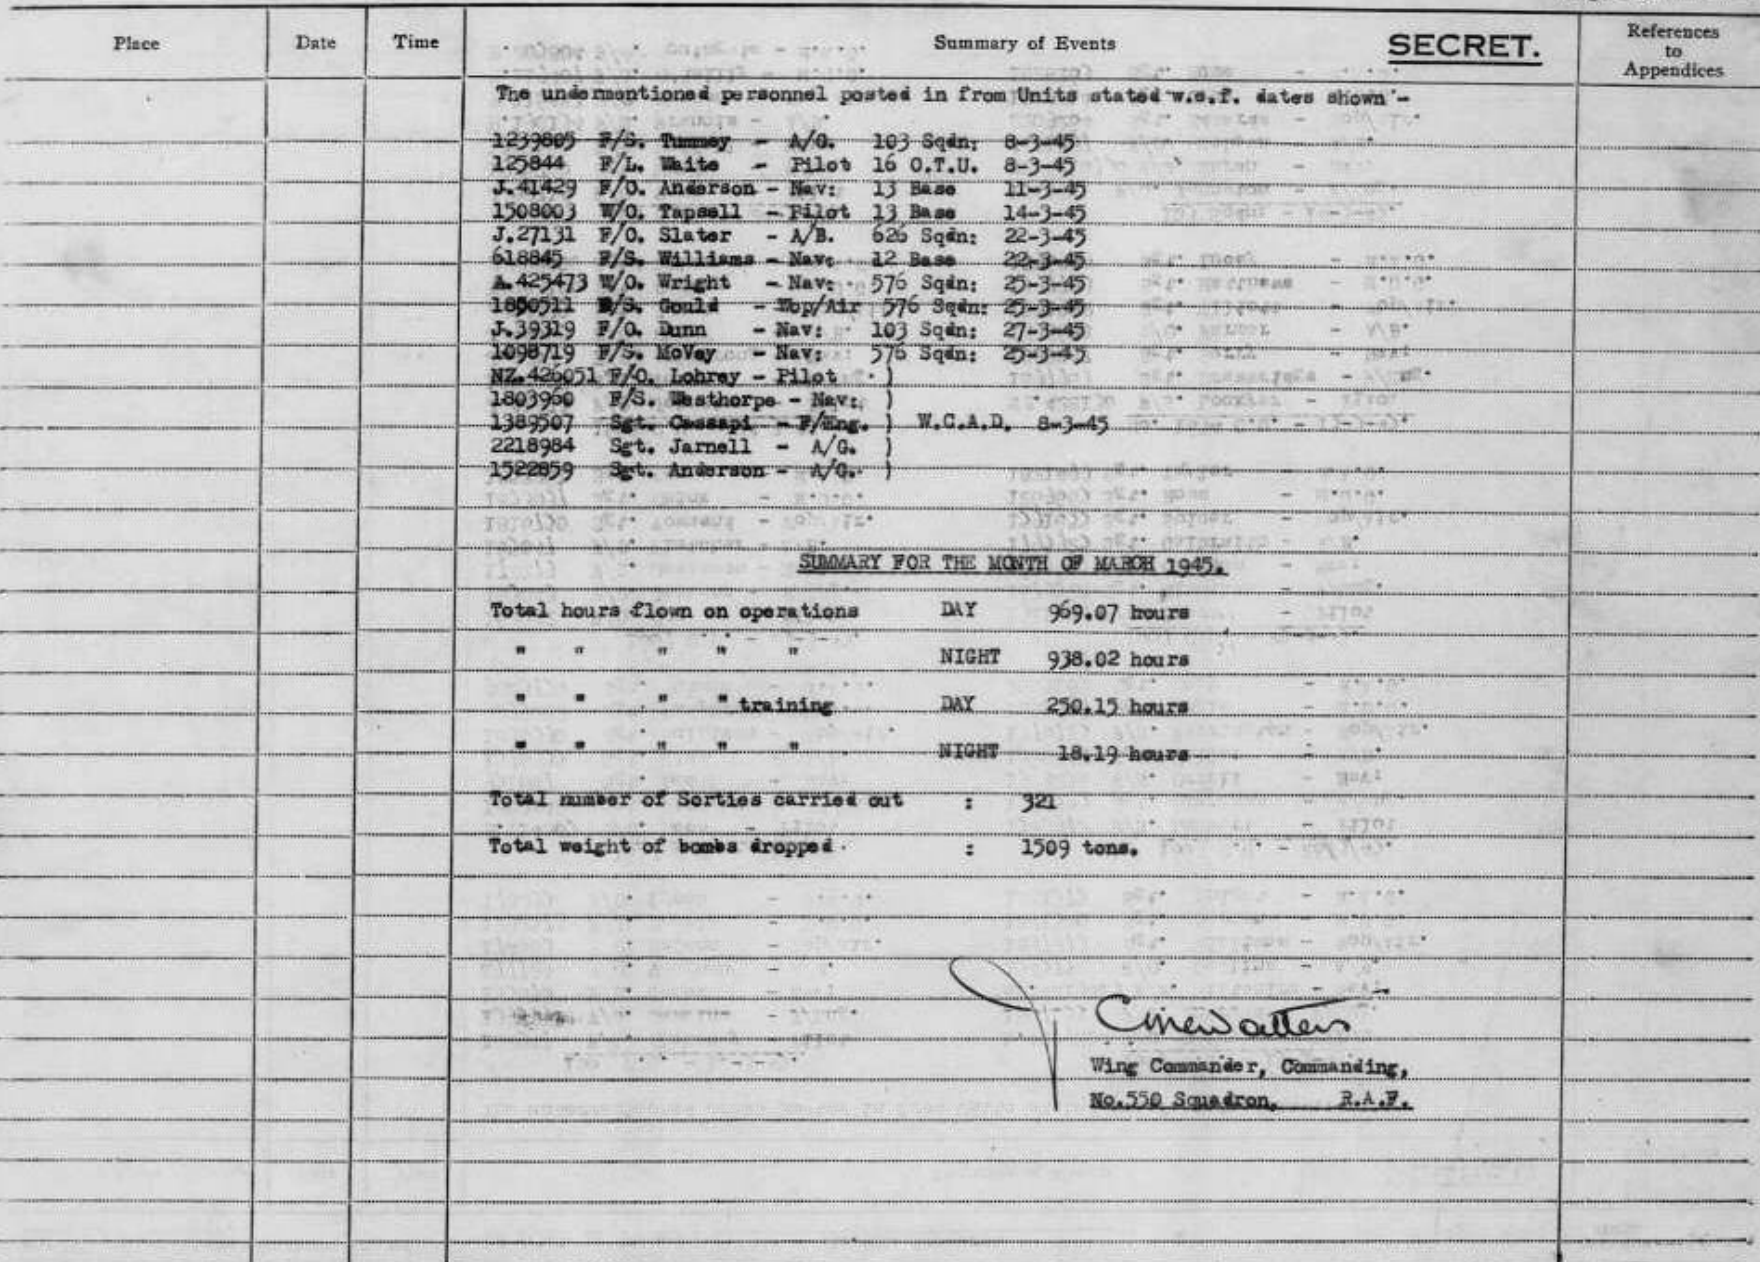 Place Date Time Summary of Events SECRET. References to Appendices
The undermentioned personnel posted in from Units stated w.e.f. dates shown -
1239805 F/S. Tummey - A/G. 103 Sqdn: 8-3-45
125844 F/L. Waite - Pilot 16 O.T.U. 8-3-45
J.41429 F/O. Anderson - Nav: 13 Base 11-3-45
1508003 W/O. Tapsell - Pilot 13 Base 14-3-45
J.27131 F/O. Slater - A/B. 626 Sqdn: 22-3-45
618845 F/S. Williams - Nav: 12 Base 22-3-45
A.425473 W/O. Wright - Nav: 576 Sqdn: 25-3-45
F/S. Gould - Wop/Air 576 Sqdn: 25-3-45
J.39319 F/O. Dunn - Nav: 103 Sqdn: 27-3-45
1098719 F/S. McVey - Nav: 576 Sqdn: 25-3-45
NZ.426051 F/O. Lohrey - Pilot )
1803960 F/S. Westhorpe - Nav: )
1389507 Sgt. - F/Eng. ) W.C.A.D. 8-3-45
2218984 Sgt. Jarnell - A/G. )
1522859 Sgt. Anderson - A/G. )
SUMMARY FOR THE MONTH OF MARCH 1945.
Total hours flown on operations DAY 969.07 hours
" " " " " NIGHT 938.02 hours
" " " " training DAY 250.15 hours
" " " " " NIGHT 18.19 hours
Total number of Sorties carried out : 321
Total weight of bombs dropped : 1509 tons.
Wing Commander, Commanding,
No.550 Squadron, R.A.F.